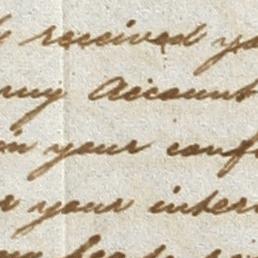 received yo
my Account
in your conf
your inter